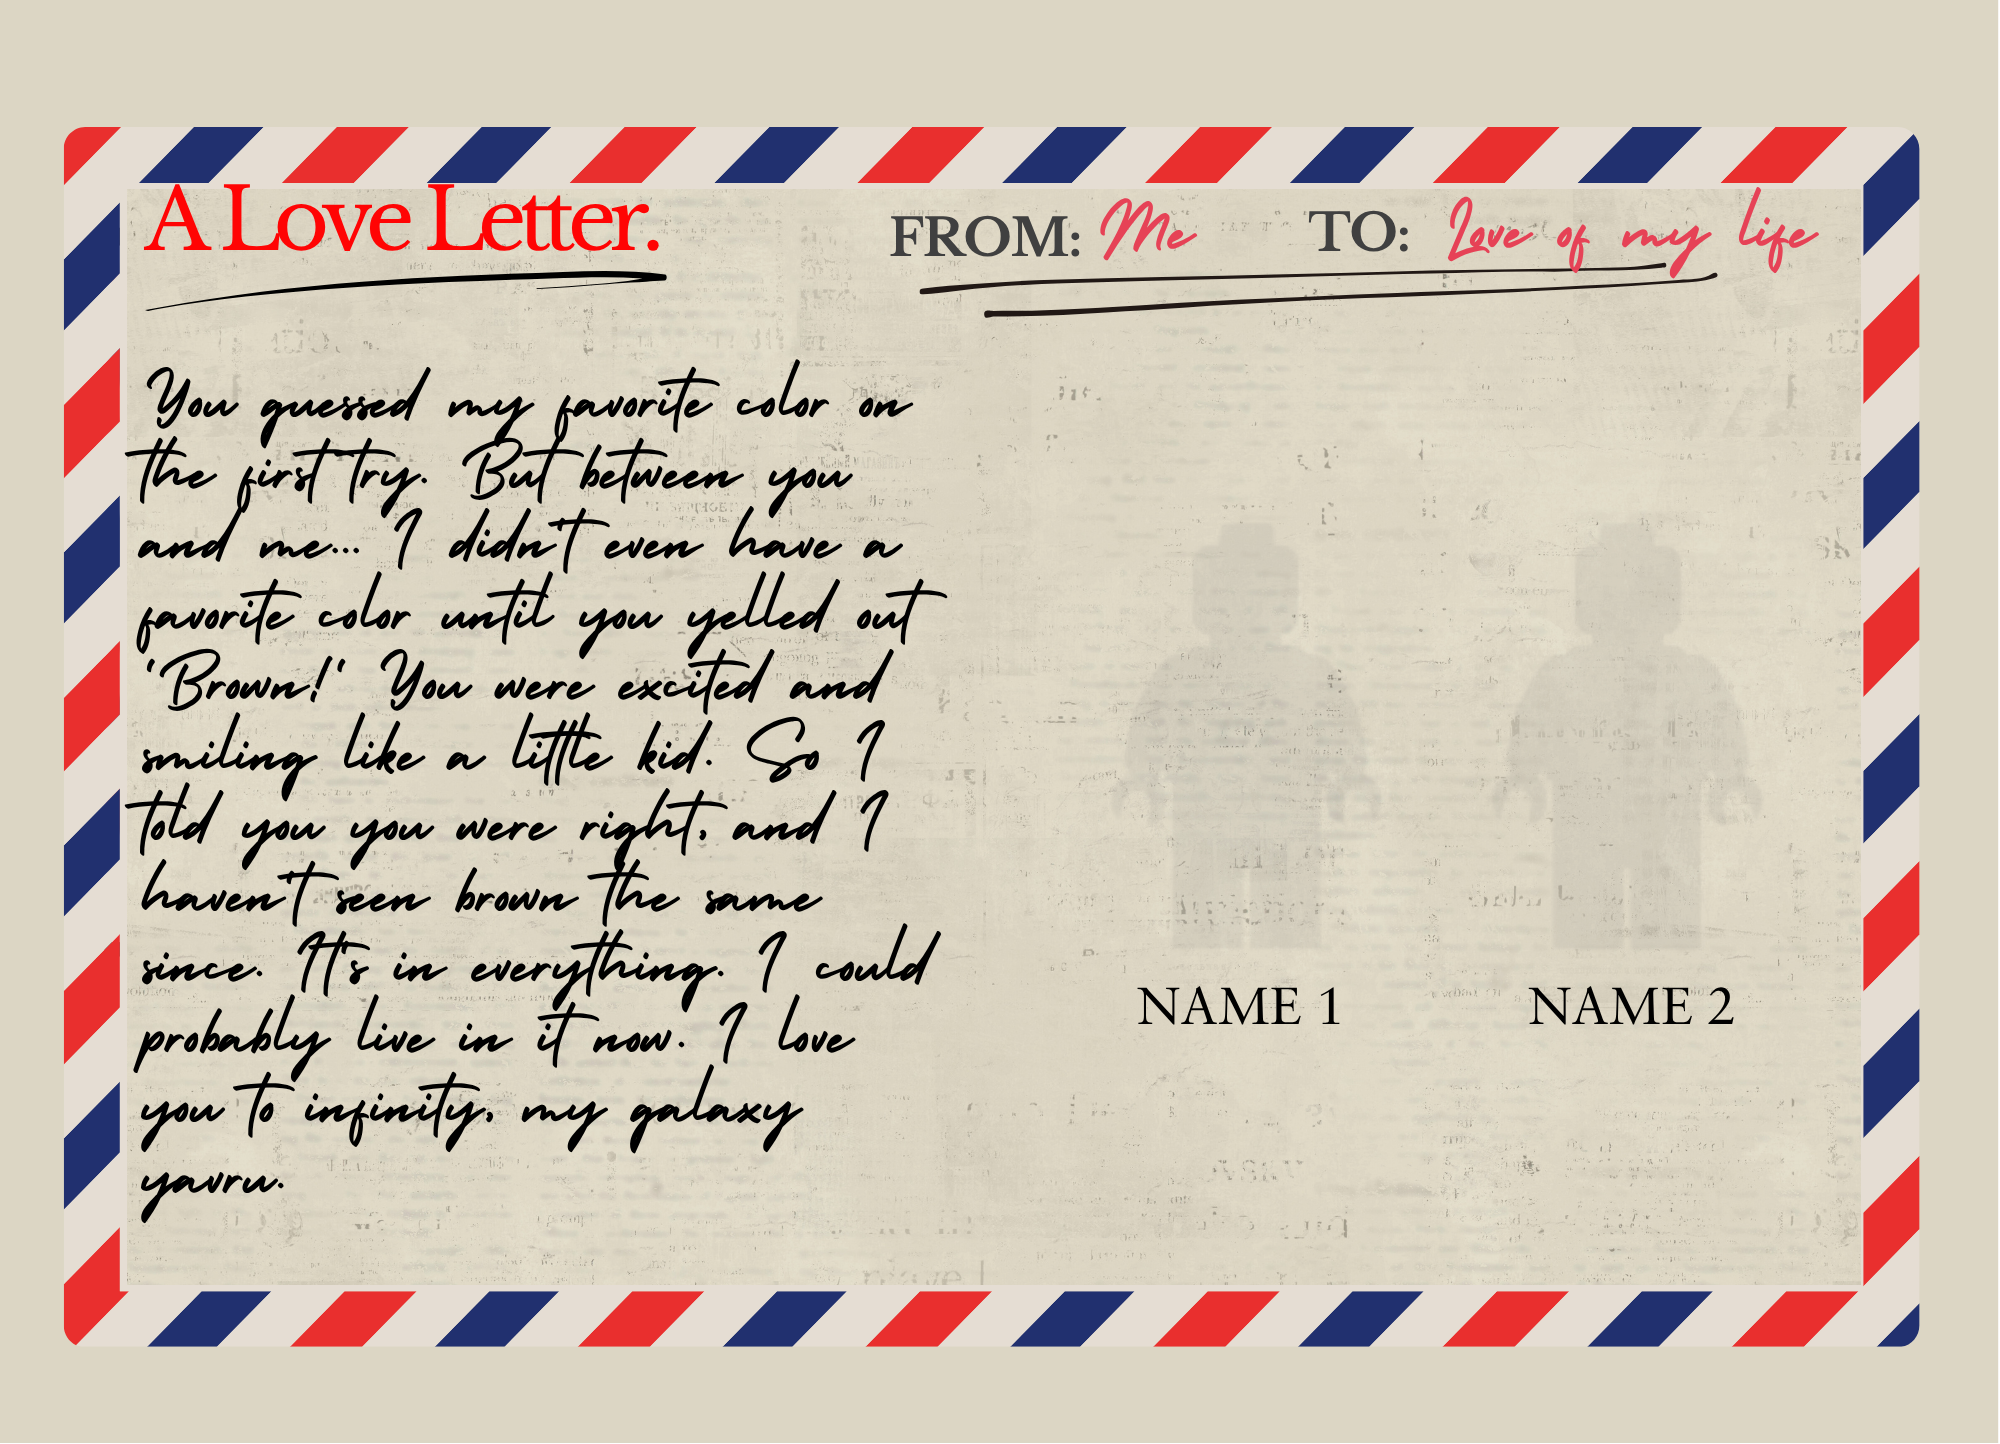 A Love Letter.
FROM: Me TO: Love of my life
You guessed my favorite color on
the first try. But between you
and me... I didn't even have a
favorite color until you yelled out
'Brown!' You were excited and
smiling like a little kid. So I
told you you were right, and I
haven't seen brown the same
since. It's in everything. I could
probably live in it now. I love
you to infinity, my galaxy
yavru.
NAME 1 NAME 2